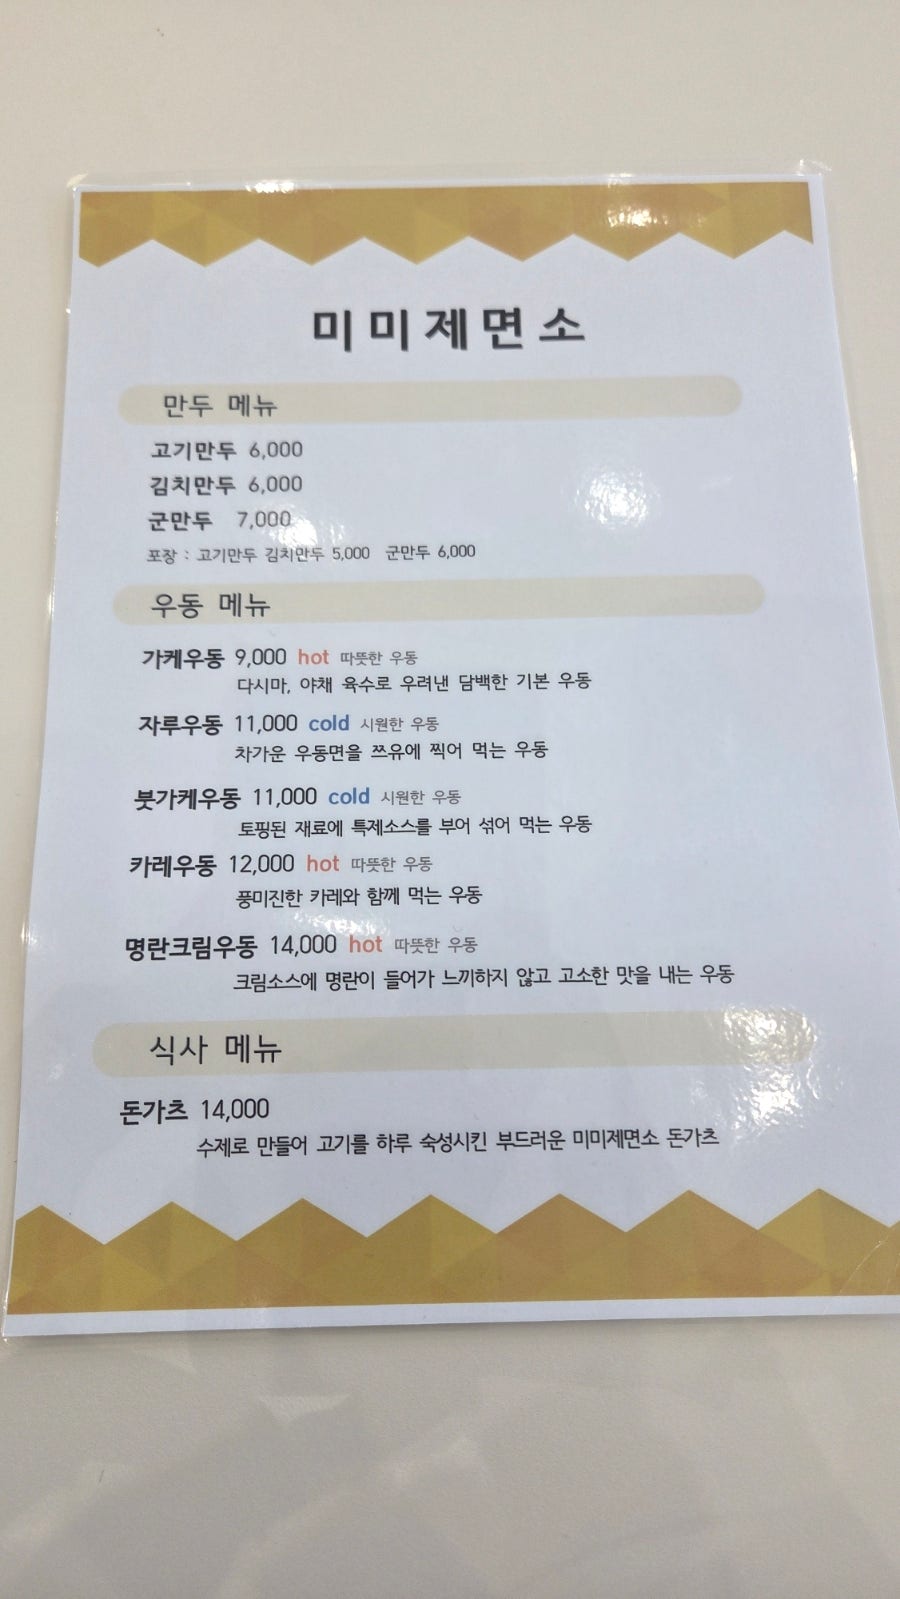 미미제면소
만두 메뉴
고기만두 6,000
김치만두 6,000
군만두 7,000
포장 : 고기만두 김치만두 5,000 군만두 6,000
우동 메뉴
가케우동 9,000 hot 따뜻한 우동
다시마, 야채 육수로 우려낸 담백한 기본 우동
자루우동 11,000 cold 시원한 우동
차가운 우동면을 쯔유에 찍어 먹는 우동
붓가케우동 11,000 cold 시원한 우동
토핑된 재료에 특제소스를 부어 섞어 먹는 우동
카레우동 12,000 hot 따뜻한 우동
풍미진한 카레와 함께 먹는 우동
명란크림우동 14,000 hot 따뜻한 우동
크림소스에 명란이 들어가 느끼하지 않고 고소한 맛을 내는 우동
식사 메뉴
돈가츠 14,000
수제로 만들어 고기를 하루 숙성시킨 부드러운 미미제면소 돈가츠